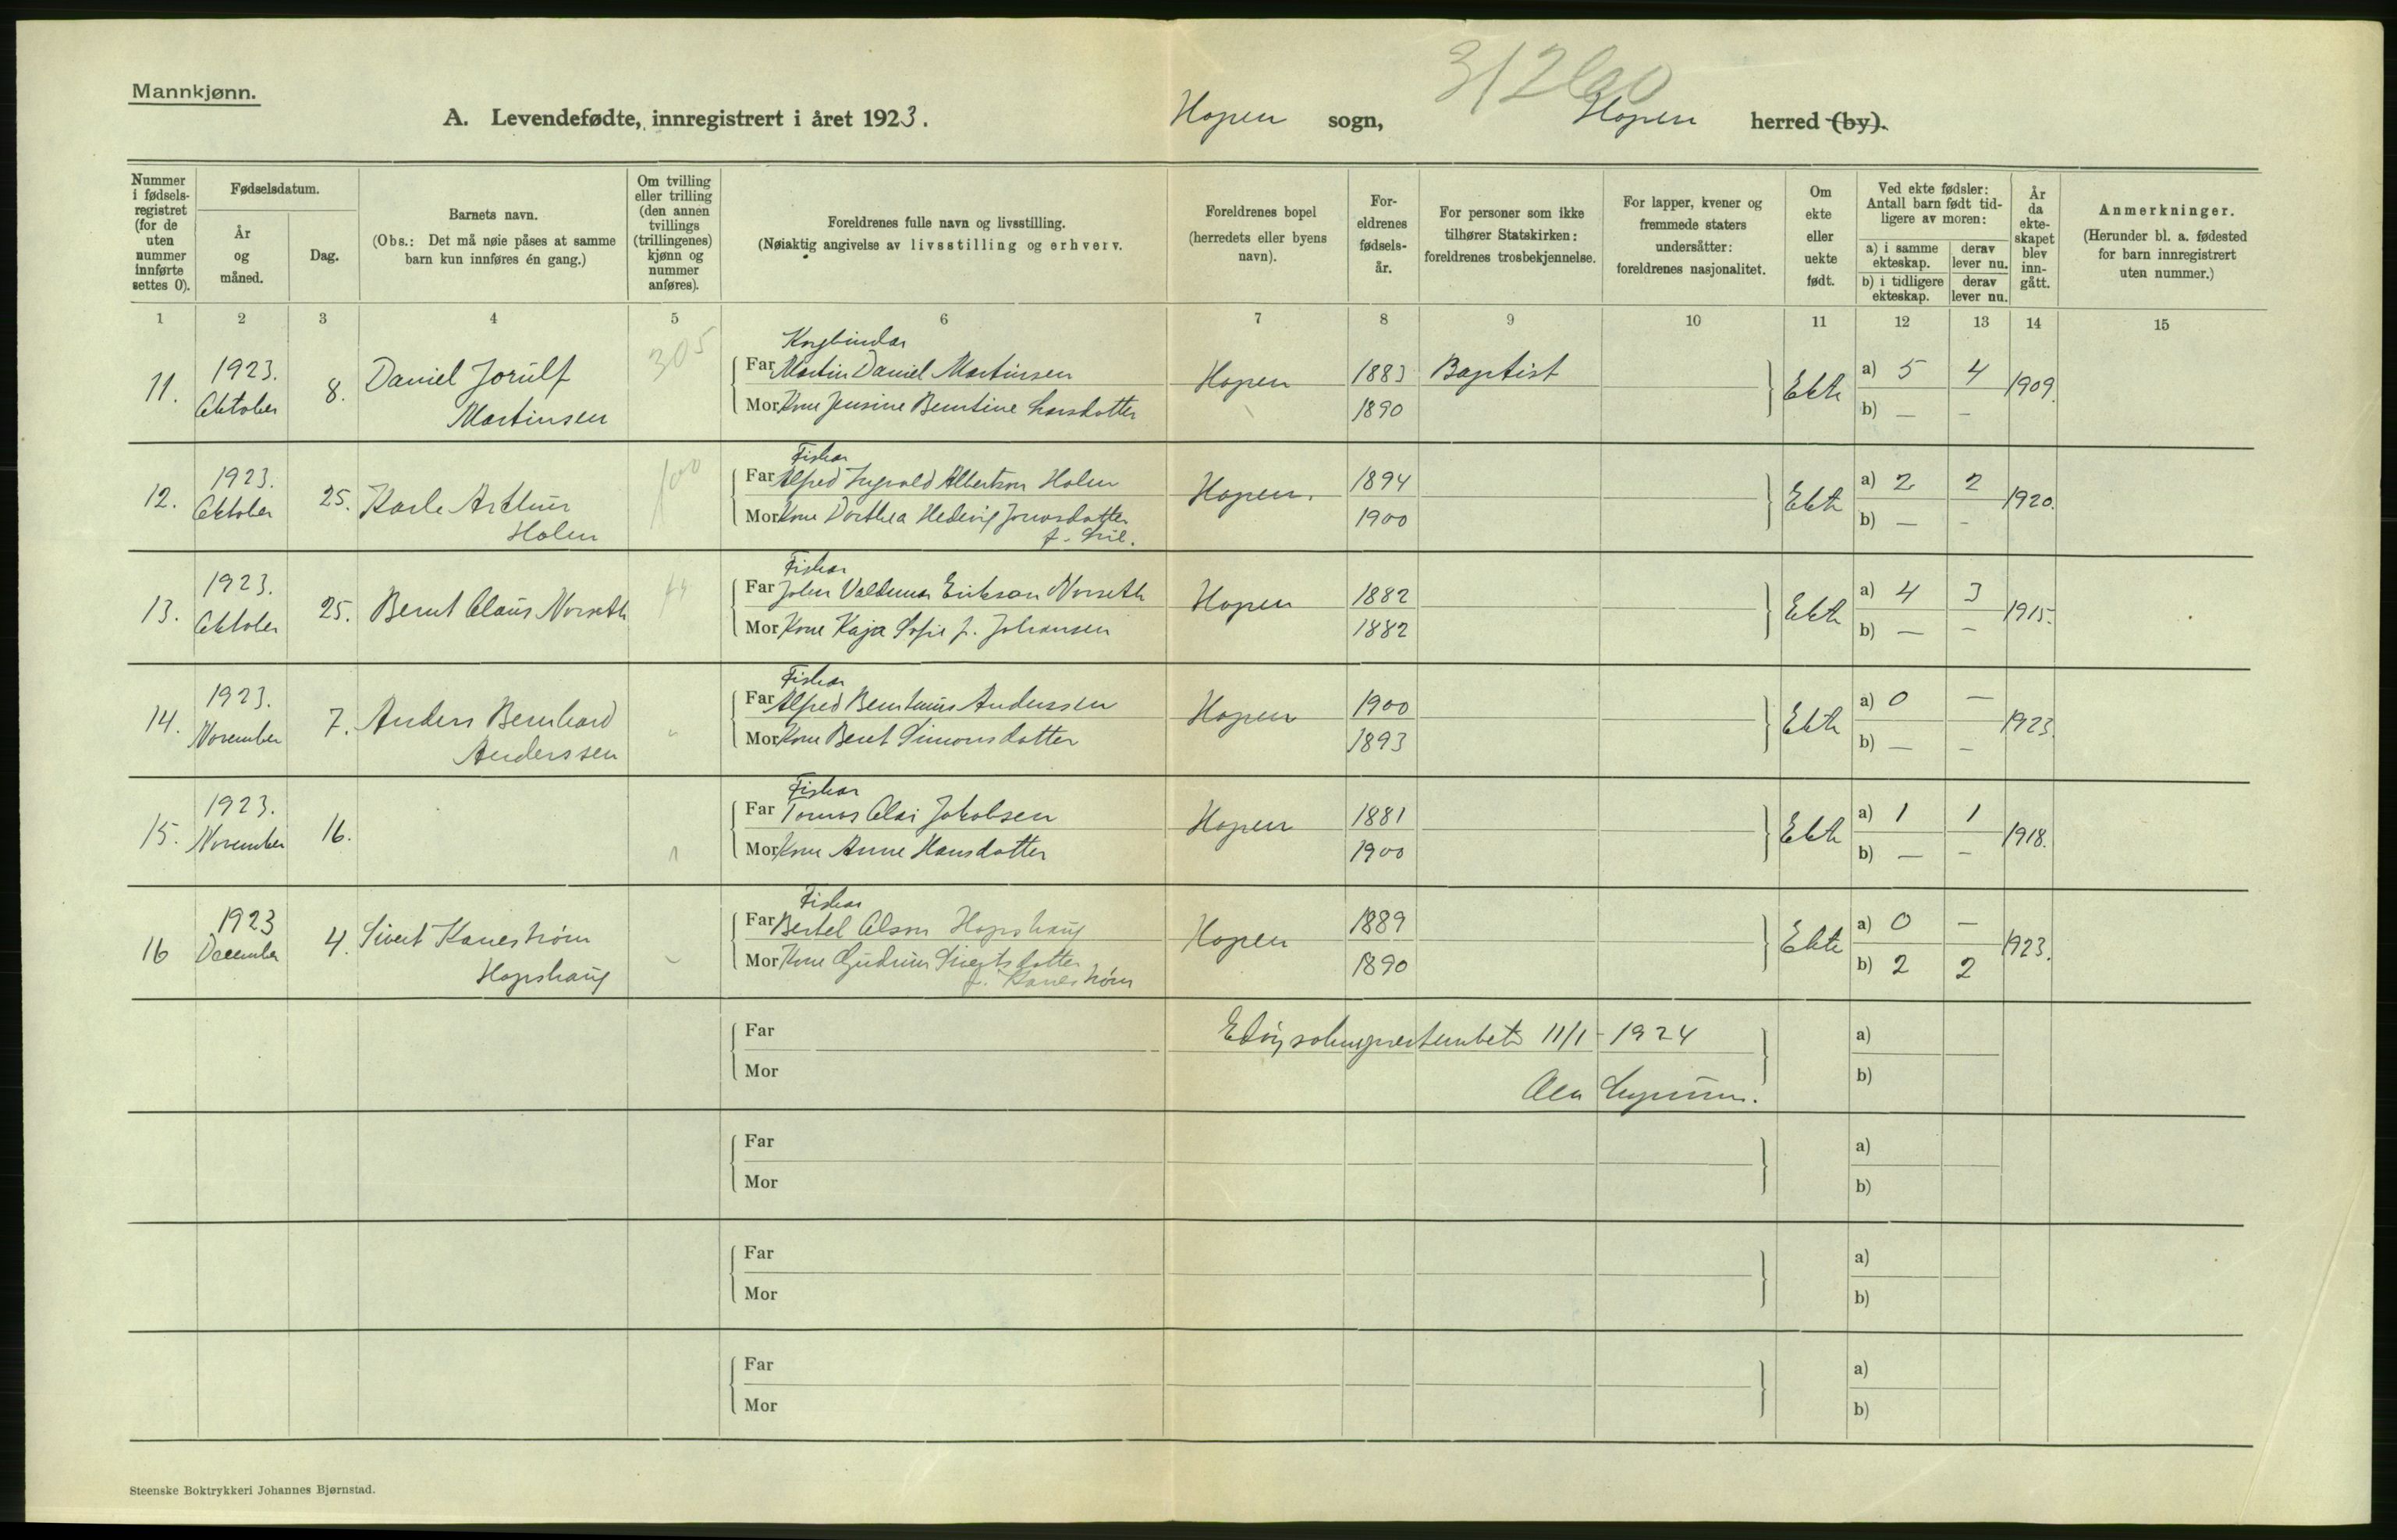 Mannkjønn.
A. Levendefødte, innregistrert i året 1923.
Hopen sogn, Hopen herred (by).
Nummer i fødsels-registret (for de uten nummer innførte settes 0).
Fødselsdatum.
År og måned.
Dag.
Barnets navn.
(Obs.: Det må nøie påses at samme barn kun innføres én gang.)
Om tvilling eller trilling (den annen tvillings (trillingenes) kjønn og nummer anføres).
Foreldrenes fulle navn og livsstilling.
(Nøiaktig angivelse av livsstilling og erhverv.
Foreldrenes bopel (herredets eller byens navn).
For-eldrenes fødsels-år.
For personer som ikke tilhører Statskirken: foreldrenes trosbekjennelse.
For lapper, kvener og fremmede staters undersåtter: foreldrenes nasjonalitet.
Om ekte eller uekte født.
Ved ekte fødsler: Antall barn født tid-ligere av moren:
a) i samme ekteskap.
derav lever nu.
b) i tidligere ekteskap.
derav lever nu.
År da ekte-skapet blev inn-gått.
Anmerkninger.
(Herunder bl. a. fødested for barn innregistrert uten nummer.)
1 2 3 4 5 6 7 8 9 10 11 12 13 14 15
305
11. 1923. Oktober 8. Daniel Jorulf Martinsen
Far Martin Daniel Martinsen Hopen 1883 Baptist Ekte a) 5 4 1909.
Mor Kone Jensine Berntine Larsdotter 1890 b) — —
Fiskar
12. 1923. Oktober 25. Karle Arthur Holen
Far Alfred Ingvald Albertson Holen Hopen. 1894 Ekte a) 2 2 1920.
Mor Kone Dorthea Hedevig Jonasdotter 1900 b) — —
Fiskar
13. 1923. Oktober 25. Bernt Olaus Norseth
Far Johan Valdemar Erikson Norseth Hopen 1882 Ekte a) 4 3 1915.
Mor Kone Kaja Sofie f. Johansen 1882 b) — —
Fiskar
14. 1923. November 7. Anders Bernhard Anderssen
Far Alfred Bernhard Anderssen Hopen 1900 Ekte a) 0 — 1923.
Mor Kone Beret Simonsdotter 1893 b) — —
Fiskar
15. 1923. November 16.
Far Tomas Olai Jakobsen Hopen 1881 Ekte a) 1 1 1918.
Mor Kone Anne Hansdotter 1900 b) — —
Fiskar
16 1923 December 4. Sivert Kanestrøm Hopshaug
Far Bertel Olson Hopshaug Hopen 1889 Ekte a) 0 — 1923.
Mor Kone Gudrun Sivertsdotter f. Kanestrøm 1890 b) 2 2
Far Edøy sokneprestembete 11/1 - 1924 a)
Mor b)
Far a)
Mor b)
Far a)
Mor b)
Far a)
Mor b)
Steenske Boktrykkeri Johannes Bjørnstad.